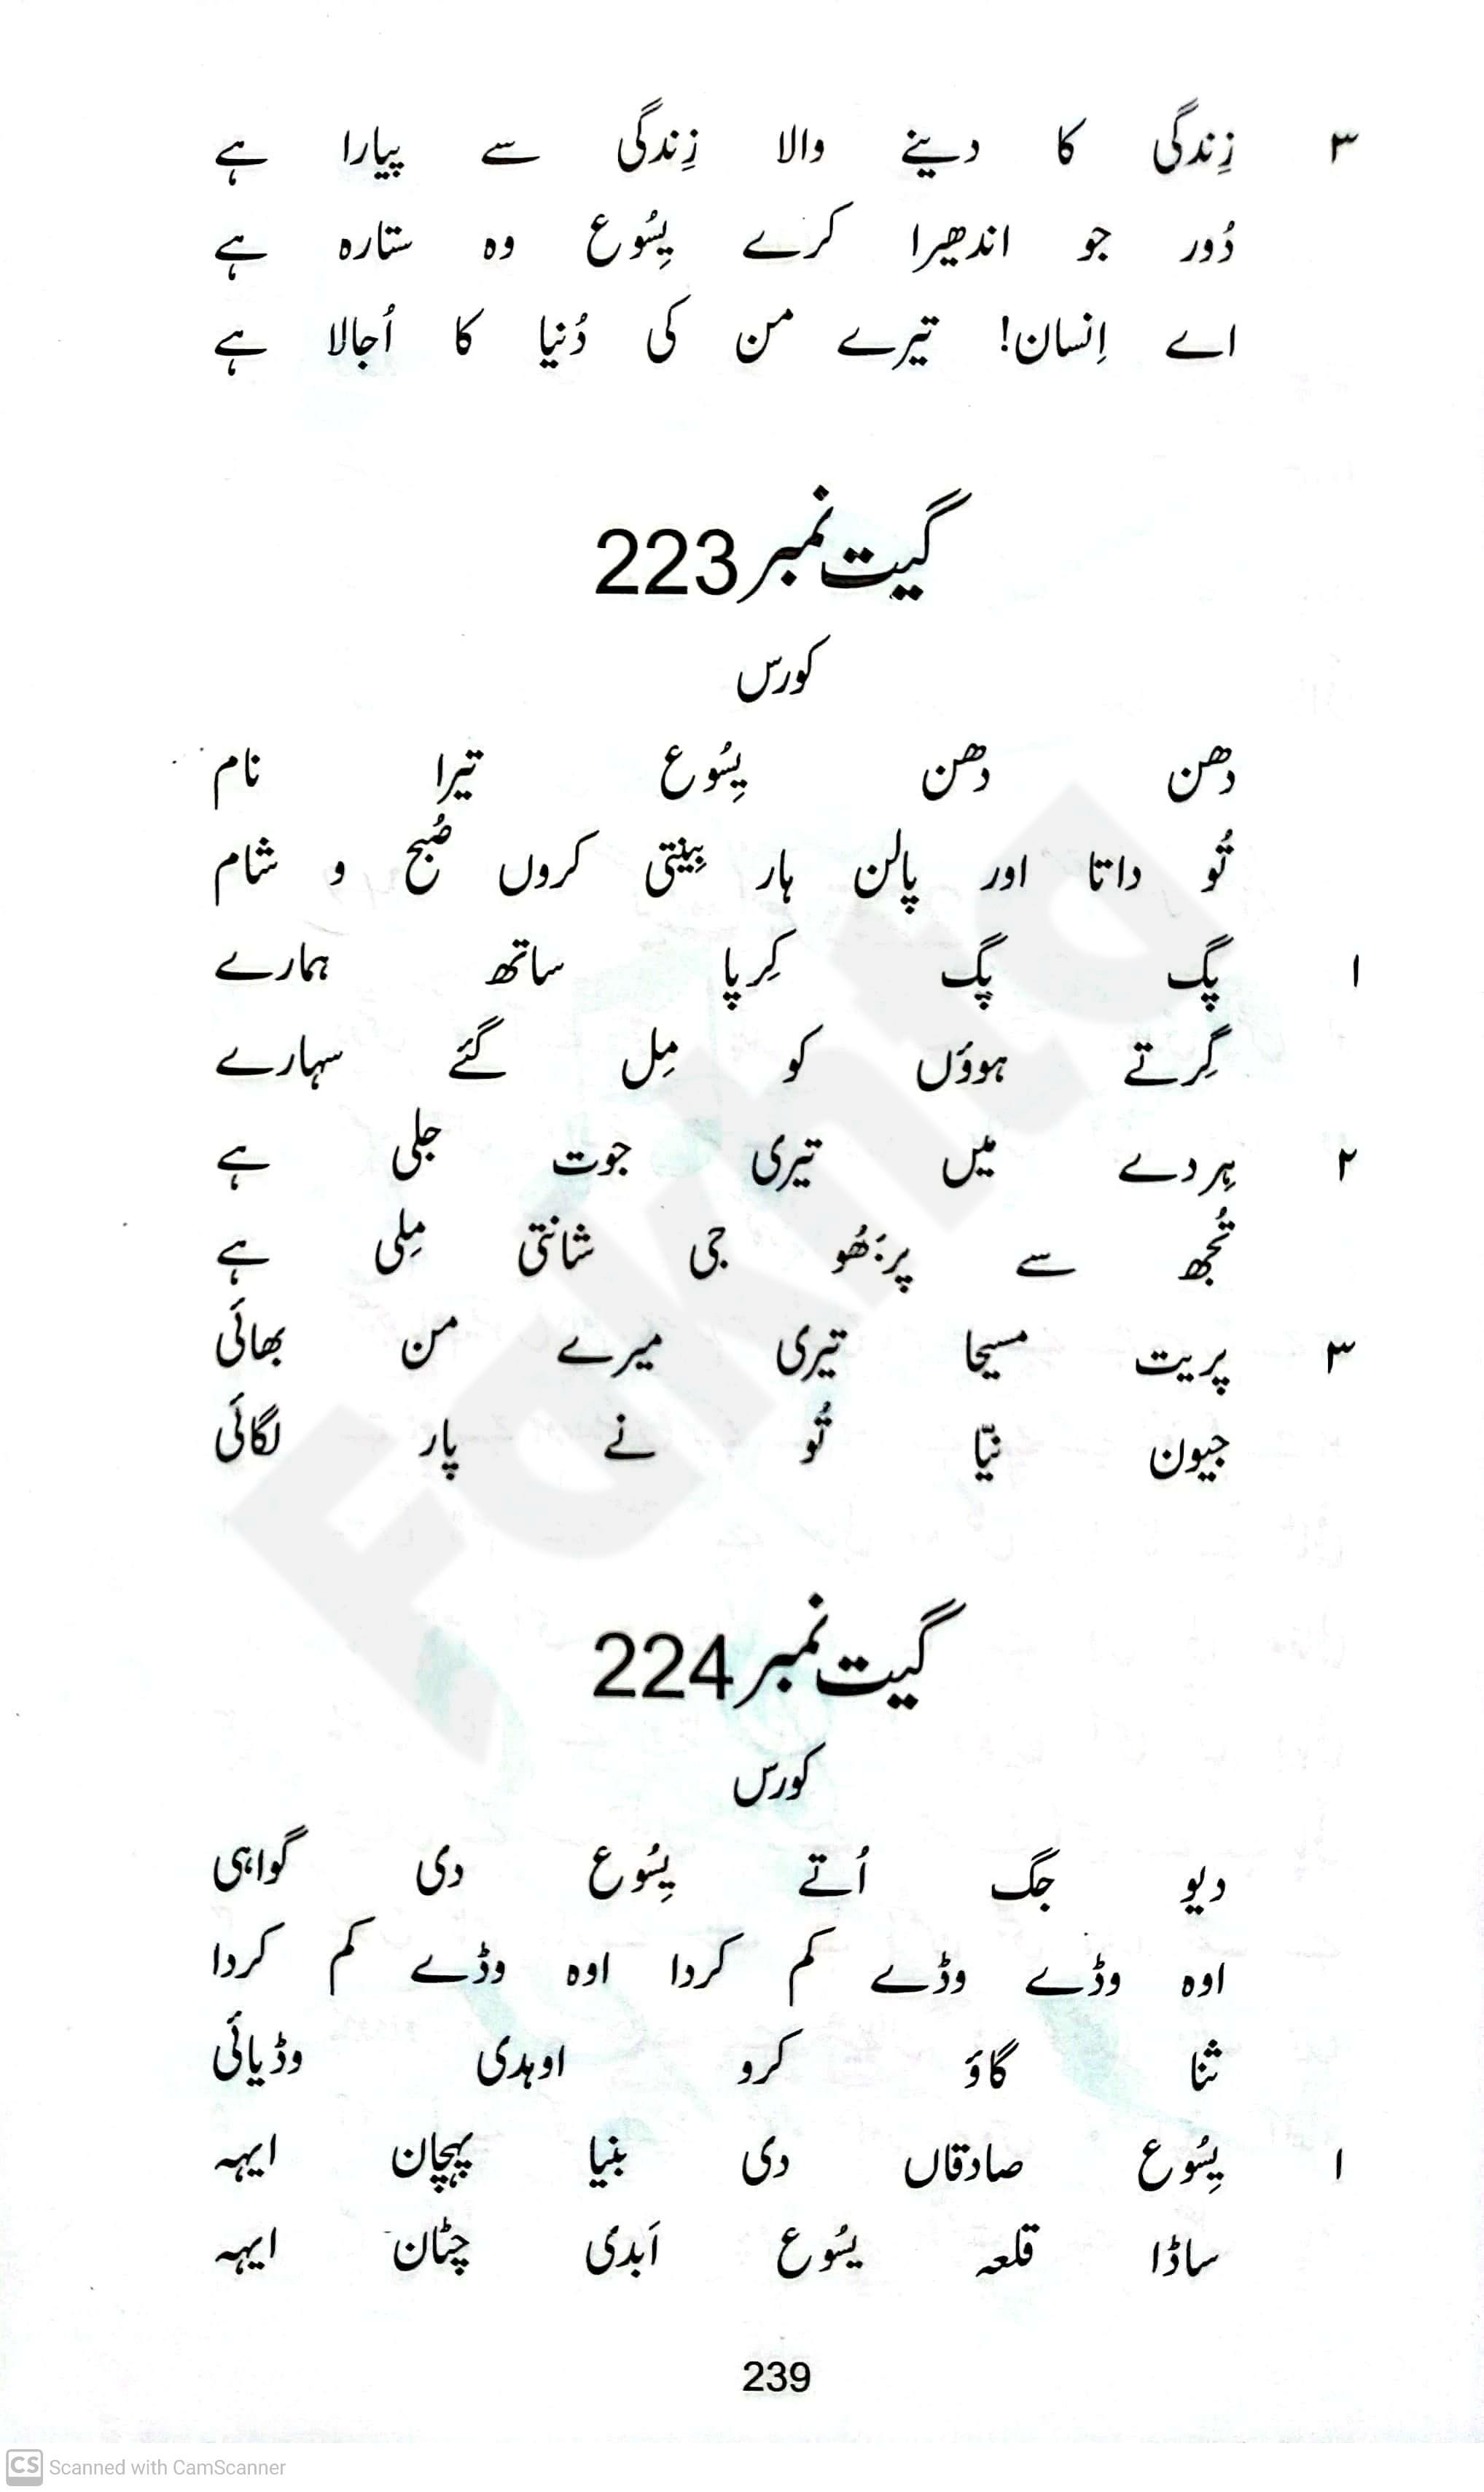 ۳ زِندگی کا دینے والا زِندگی سے پیارا ہے
دُور جو اندھیرا کرے یِسُوع وہ ستارہ ہے
اے اِنسان! تیرے من کی دُنیا کا اُجالا ہے
گیت نمبر 223
کورس
دھن دھن یِسُوع تیرا نام
تُو داتا اور پالن ہار بِینتی کروں صُبح و شام
۱ پگ پگ کِرپا ساتھ ہمارے
گِرتے ہوؤں کو مِل گئے سہارے
۲ ہِردے میں تیری جوت جلی ہے
تُجھ سے پربُھو جی شانتی مِلی ہے
۳ پریت مسیحا تیری میرے من بھائی
جیون نیّا تُو نے پار لگائی
گیت نمبر 224
کورس
دیو جگ اُتے یِسُوع دی گواہی
اوہ وڈے وڈے کم کردا اوہ وڈے کم کردا
ثنا گاؤ کرو اوہدی وڈیائی
۱ یِسُوع صادقاں دی بنیا پہچان ایہہ
ساڈا قلعہ یسُوع اَبدی چٹان ایہہ
239
CS Scanned with CamScanner
Fakhta